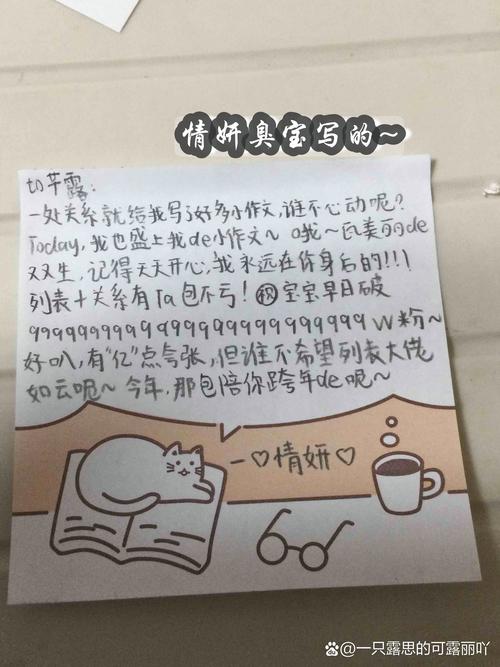 情妍臭宝写的~
to芊露:
一处关系就给我写了好多小作文,谁不心动呢?
Today,我也盛上我de小作文~ o我~瓦美丽de
双双生,记得天天开心,我永远在你身后的!!!
列表十关系有Ta包不亏!祝宝宝早日破
9999999999999999999999999999999W粉~
好叭,有"亿"点夸张,但谁不希望列表大佬
如云呢~ 今年,那包陪你跨年de呢~
一♡情妍♡
@一只露思的可露丽吖